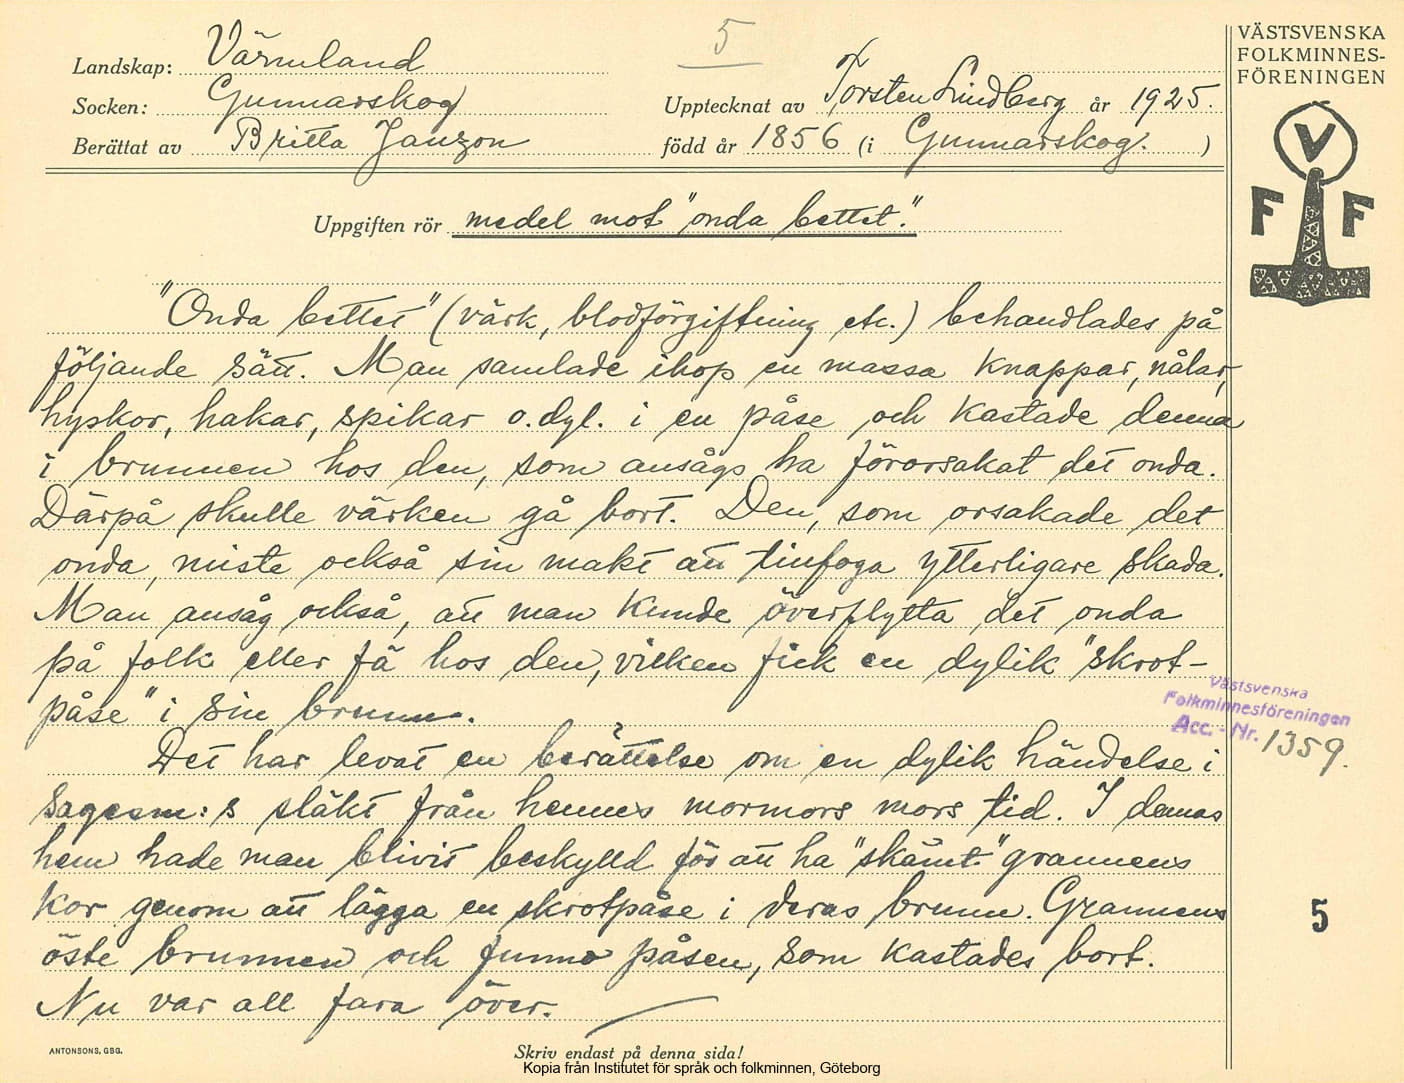 5
Landskap: Värmland
Socken: Gunnarskog
Upptecknat av Torsten Lindberg år 1925.
Berättat av Britta Janzon född år 1856 (i Gunnarskog. )
VÄSTSVENSKA
FOLKMINNES-
FÖRENINGEN
V
F F
Uppgiften rör medel mot "onda bettet."
"Onda bettet" (värk, blodförgiftning etc.) behandlades på
följande sätt. Man samlade ihop en massa knappar, nålar,
hyskor, hakar, spikar o.dyl. i en påse och kastade denna
i brunnen hos den, som ansågs ha förorsakat det onda.
Därpå skulle värken gå bort. Den, som orsakade det
onda, miste också sin makt att tillfoga ytterligare skada.
Man ansåg också, att man kunde överflytta det onda
på folk eller fä hos den, vilken fick en dylik "skrot-
påse" i sin brunn.
Det har levat en berättelse om en dylik händelse i
Sagesm:s släkt från hennes mormors mors tid. I dennas
hem hade man blivit beskylld för att ha "skämt" grannens
kor genom att lägga en skrotpåse i deras brunn. Grannens
öste brunnen och funno påsen, som kastades bort.
Nu var all fara över.
Västsvenska
Folkminnesföreningen
Acc. - Nr. 1359.
5
ANTONSONS, GBG.
Skriv endast på denna sida!
Kopia från Institutet för språk och folkminnen, Göteborg